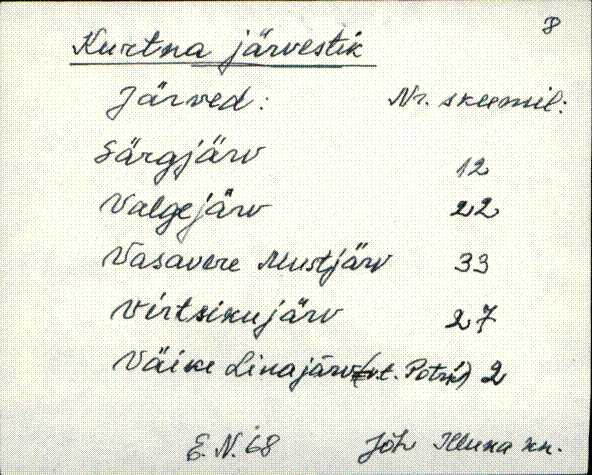 8
Kurtna järvestik
Järved: Nr. skeemil:
Särgjärv 12
Valgejärv 22
Vasavere Mustjärv 33
Virtsikujärv 27
Väike Linajärv (vt. Potri) 2
E.N.'68 Jõh Illuka kn.